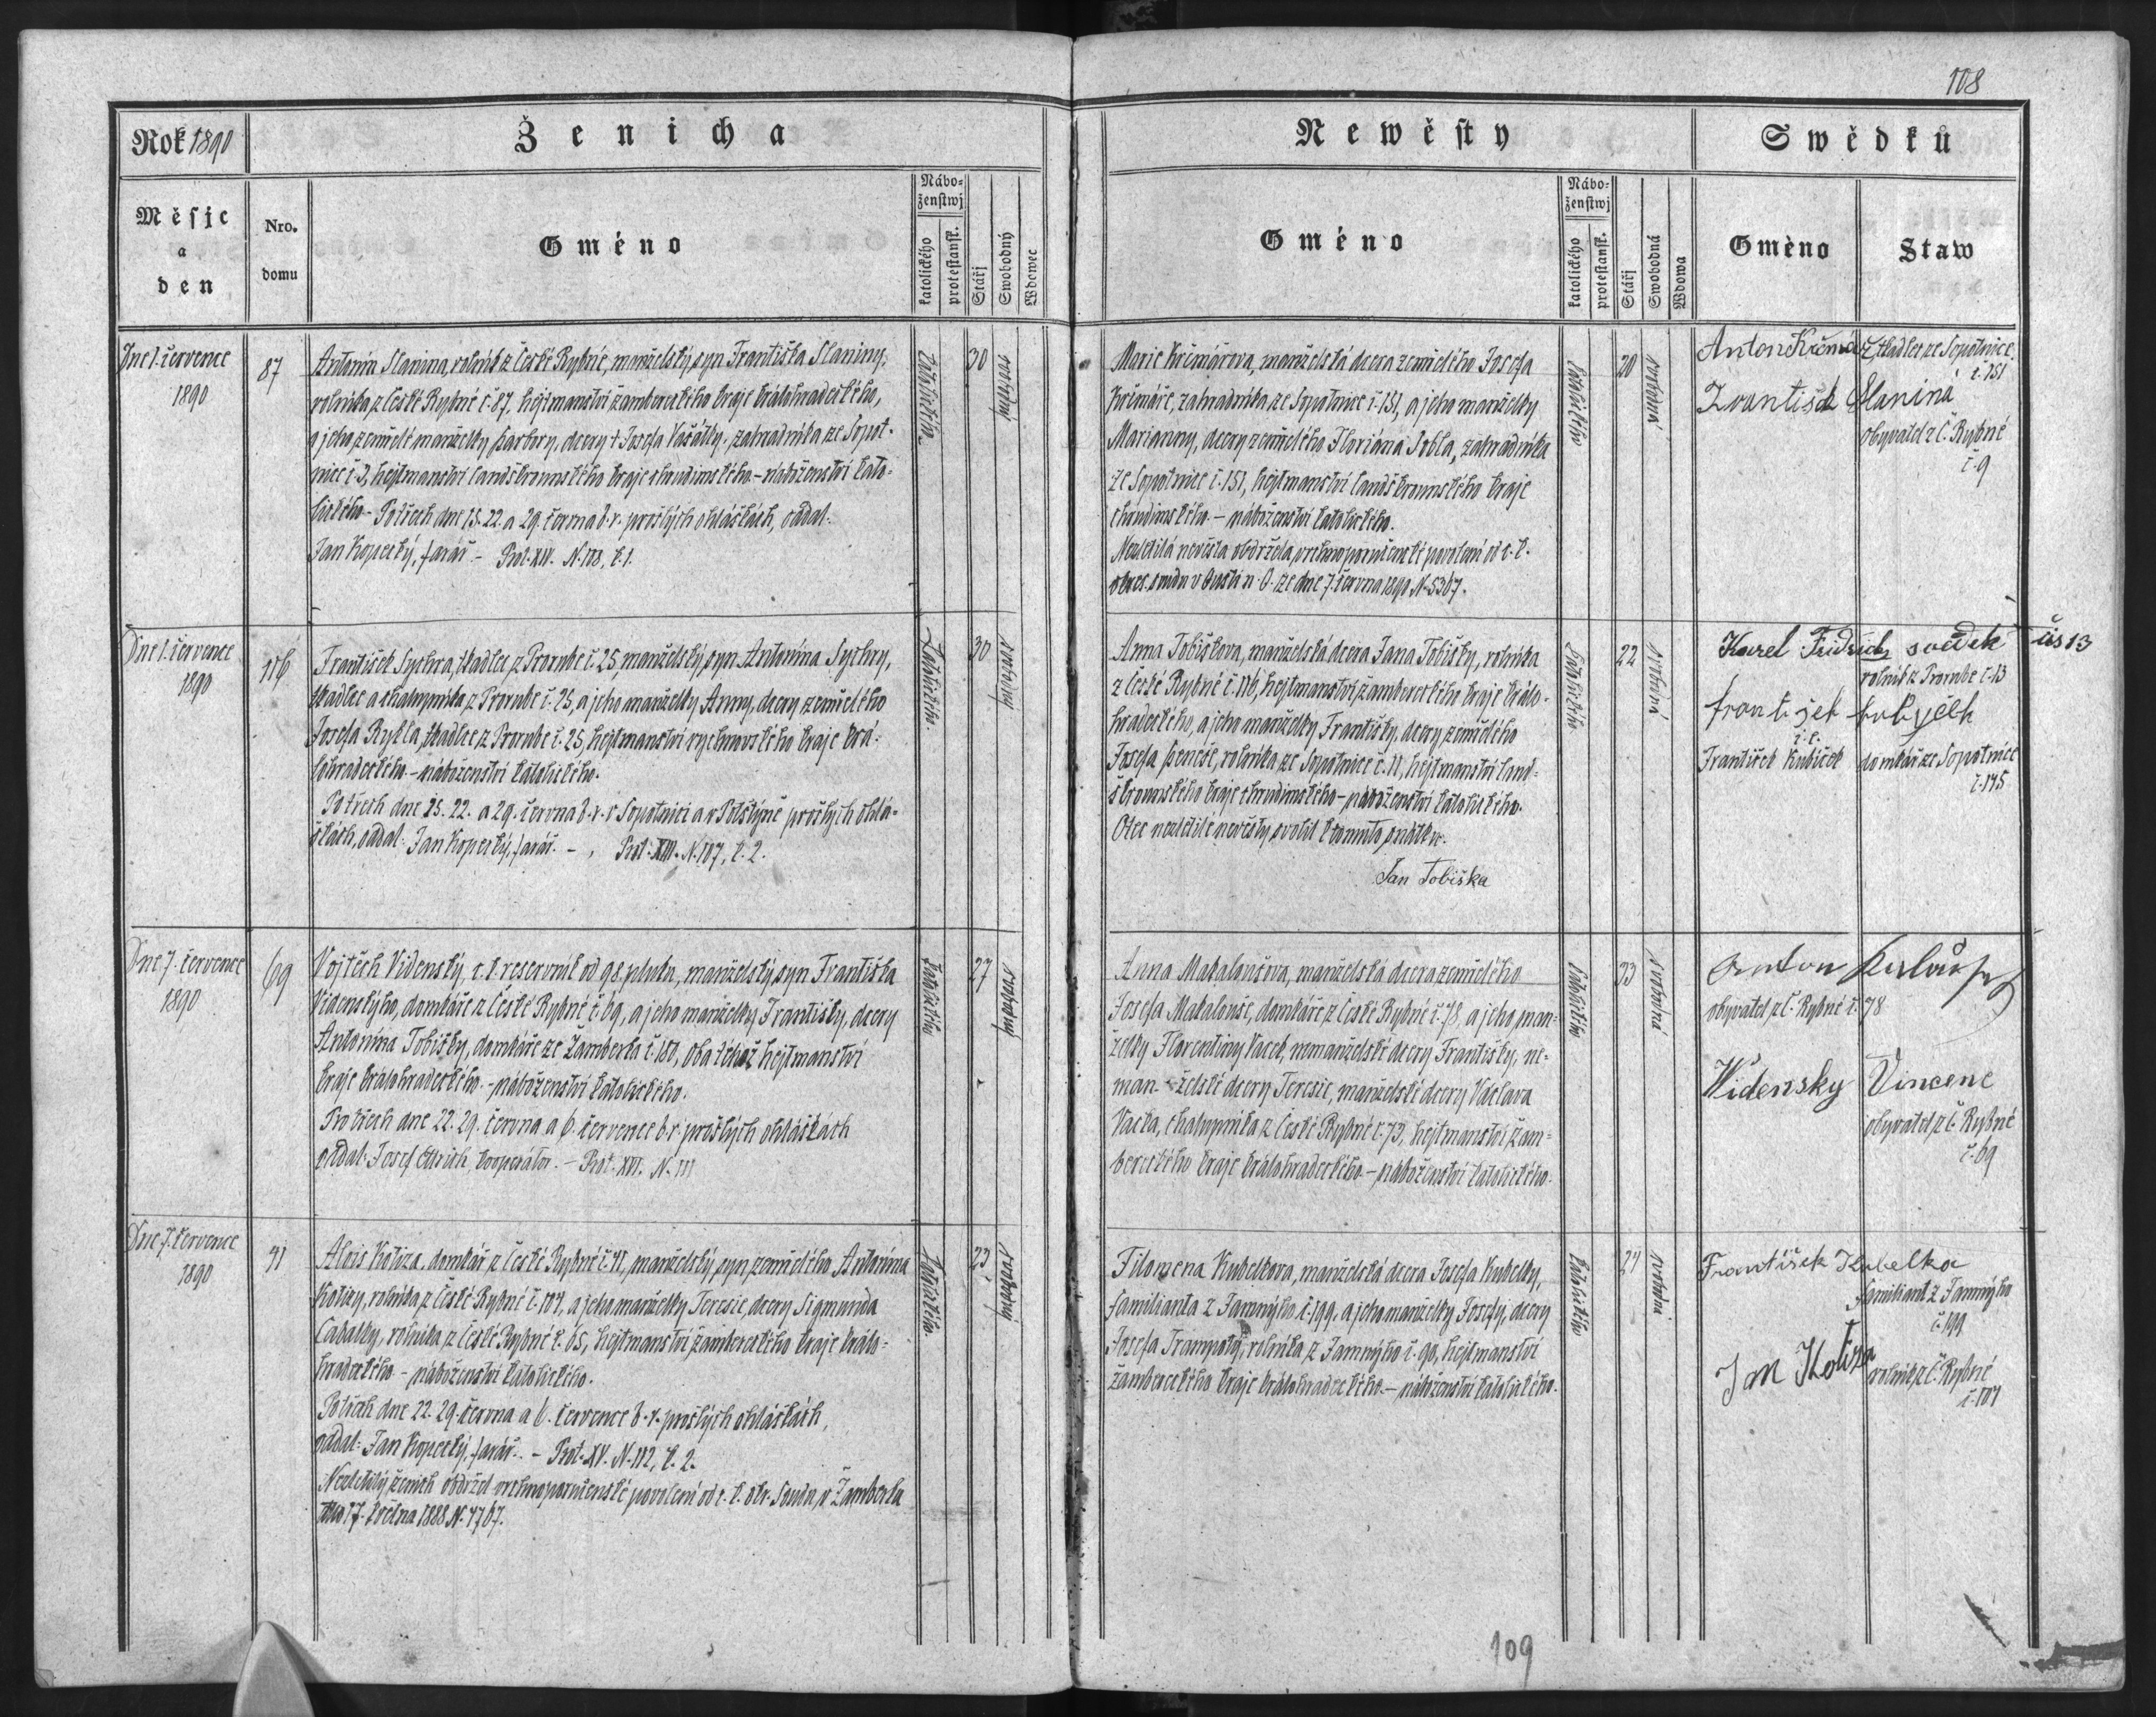 108
Rok 1890
Ženicha
Newěsty
Swědků
Měsjc
a
den
Nro.
domu
Gméno
Nábo-
ženstwj
katolického
protestansk.
Stářj
Swobodný
Wdowec
Gméno
Nábo-
ženstwj
katolického
protestansk.
Stářj
Swobodná
Wdowa
Gméno
Staw
Dne 1. července
1890
87
Antonín Slanina, rolník z České Rybné, manželský syn Františka Slaniny,
rolníka z České Rybné č. 87, hejtmanství žambereckého kraje králohradeckého,
a jeho zemřelé manželky Barbory, dcery † Josefa Vašátky, zahradníka ze Sopot-
nice č. 3, hejtmanství landškrounského kraje chrudimského - náboženství kato-
lického - Po třech dne 15. 22. a 29. června b. r. prošlých ohláškách, oddal:
Jan Kopecký, farář. - Prot. XIV. N. 108, č. 1.
katolického
30
svobodný
Marie Krčmářova, manželská dcera zemřelého Josefa
Krčmáře, zahradníka ze Sopotnice č. 151, a jeho manželky
Marianny, dcery zemřelého Floriána , zahradníka
ze Sopotnice č. 151, hejtmanství landškrounského kraje
chrudimského. - náboženství katolického.
Nezletilá nevěsta obdržela vrchnoporučenské povolení od c. k.
okres. soudu v Oustí n. O. ze dne 7. června 1890 N. 5367.
katolického
20
svobodná
Anton Krčmař, tkadlec ze Sopotnice
č. 151
František Slanina
obyvatel z Č. Rybné
č. 9
Dne 1. července
1890
116
František Sychra, tkadlec z Prorubě č. 25, manželský syn Antonína Sychry,
tkadlce a chalupníka z Prorubě č. 25, a jeho manželky Anny, dcery zemřelého
Josefa Rykla, tkadlce z Prorubě č. 25, hejtmanství rychnovského kraje krá-
lohradeckého. - náboženství katolického.
Po třech dne 15. 22. a 29. června b. r. v Sopotnici a v Potštýně prošlých ohlá-
škách, oddal: Jan Kopecký, farář. -, Prot. XIII. N. 107, č. 2.
katolického
30
svobodný
Anna Tobiškova, manželská dcera Jana Tobišky, rolníka
z České Rybné č. 116, hejtmanství žambereckého kraje králo-
hradeckého, a jeho manželky Františky, dcery zemřelého
Josefa , rolníka ze Sopotnice č. 11, hejtmanství land-
škrounského kraje chrudimského - náboženství katolického.
Otec nezletilé nevěsty svolil k tomuto sňatku.
Jan Tobiška
katolického
22
svobodná
Karel Fridrich svědek čís 13
rolník z Prorubě č. 13
frantijek kubyček
František Kubíček domkář ze Sopotnice
č. 175
Dne 7. července
1890
69
Vojtěch Vídenský, c. k. reservník od 98. pluku, manželský syn Františka
Vídenskýho, domkáře z České Rybné č. 69, a jeho manželky Františky, dcery
Antonína Tobišky, domkáře ze Žamberka č. 180, oba téhož hejtmanství
kraje králohradeckého. - náboženství katolického.
Po třech dne 22. 29. června a 6. července b. r. prošlých ohláškách
oddal: Josef Ettrich, kooperátor. - Prot. XVI. N. 111
katolického
27
svobodný
Anna Makaloušova, manželská dcera zemřelého
Josefa Makalouše, domkáře z České Rybné č. 78, a jeho man-
želky Florentiny Vacek, nemanželské dcery Františky, ne-
man-želské dcery Teresie, manželské dcery Václava
Vacka, chalupníka z České Rybné č. 73, hejtmanství žam-
bereckého kraje králohradeckého. - náboženství katolického.
katolického
33
svobodná
Anton
obyvatel z Č. Rybné č. 78
Widensky Vincenc
obyvatel z Č. Rybné
č. 69
Dne 7. července
1890
41
Alois Kotyza, domkář z České Rybné č. 41, manželský syn zemřelého Antonína
Kotyzy, rolníka z České Rybné č. 104, a jeho manželky Teresie, dcery Sigmunda
Cabalky, rolníka z České Rybné č. 65, hejtmanství žambereckého kraje králo-
hradeckého - náboženství katolického.
Po třech dne 22. 29. června a 6. července b. r. prošlých ohláškách,
oddal: Jan Kopecký, farář. - Prot. XV. N. 112, č. 2.
Nezletilý ženich obdržel vrchnoporučenské povolení od c. k. okr. soudu v Žamberku
dne 17. května 1888 N. 4767.
katolického
23
svobodný
Filomena Kubelkova, manželská dcera Josefa Kubelky,
familianta z Jamnýho č. 199, a jeho manželky Josefy, dcery
Josefa Trampoty, rolníka z Jamnýho č. 90, hejtmanství
žambereckého kraje králohradeckého. - náboženství katolického.
katolického
24
svobodna
František Kubelka
familiant z Jamnýho
č. 199
Jan Kotiza
rolník z Č. Rybné
č. 104
109